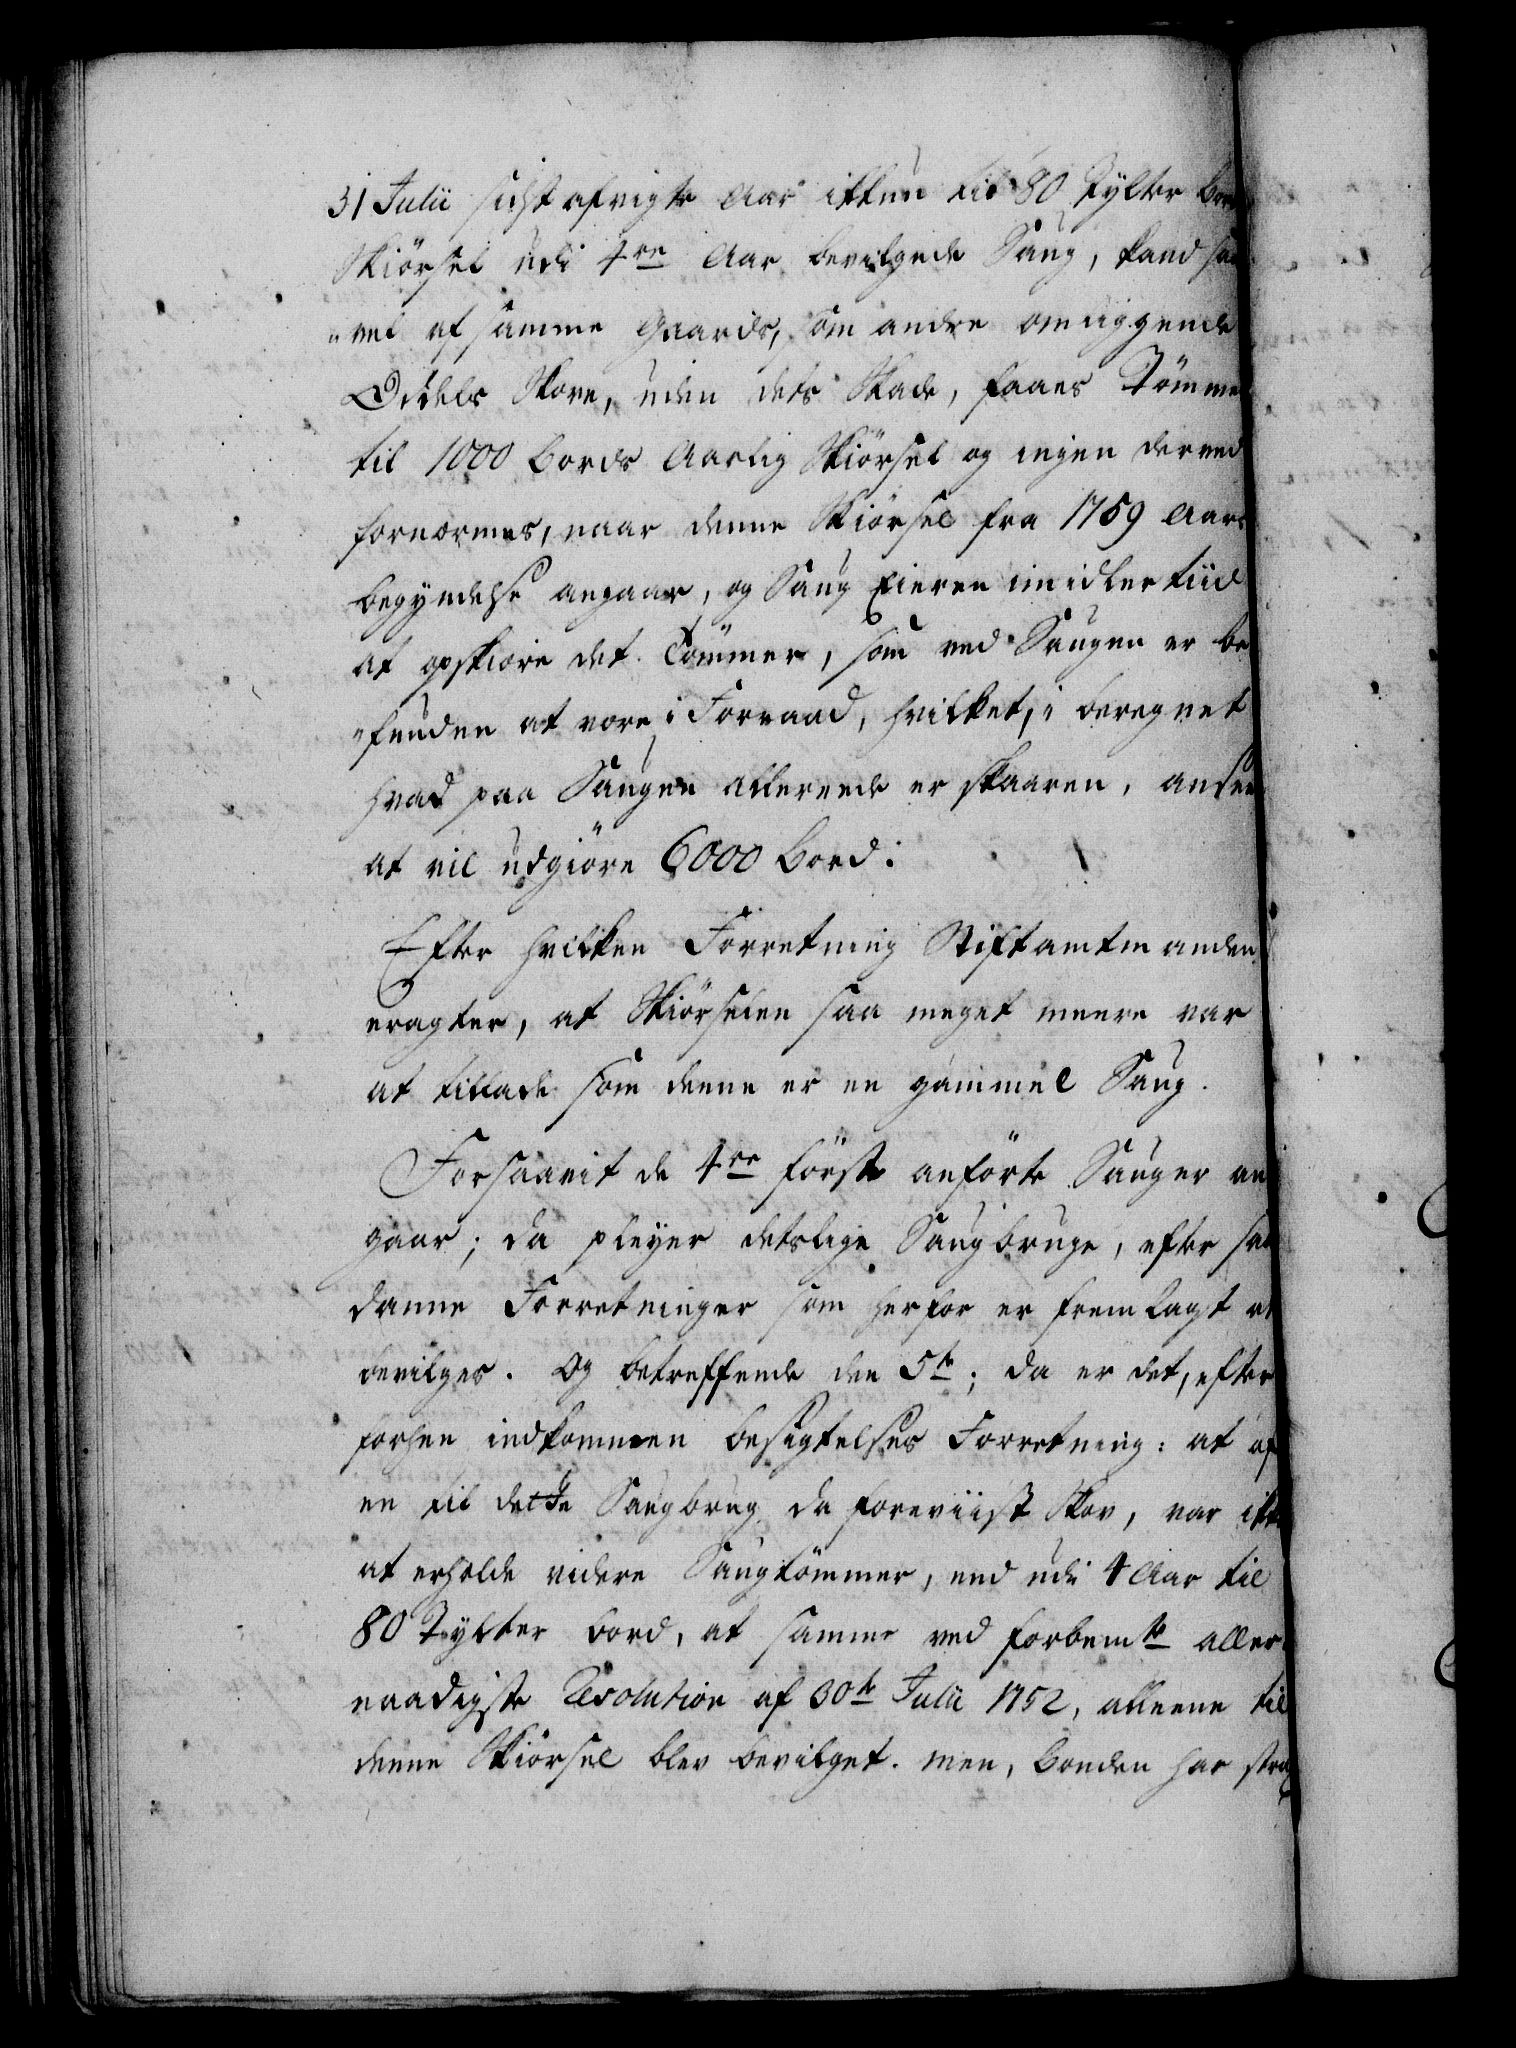 31 Julii sidst afvigte Aar ikkun til 80 Tylter Bord
Skiörsel udi 4re Aar bevilgede Saug, kand saa
„vel af samme Gaards, som andre omliggende
Oddels Skove, uden dets Skade, faaes Tömmer
til 1000 Bords Aarlig Skiörsel og ingen derved
fornærmes, naar denne Skiörsel fra 1759 Aars
begyndelse angaar, og Saug Eieren imidlertiid
at opskiære det Tömmer, som ved Saugen er be
„funden at være i Forraad, hvilket, i beregnet
hvad paa Saugen allereede er skaaren, ansees
at vil udgiöre 6000 Bord:
Efter hvilken Forretning Stiftamtmanden
eragter, at Skiörselen saa meget meere var
at tillade som denne er en gammel Saug.
Forsaavit de 4re förste anförte Sauger an
gaar; da pleyer detslige Saugbruge, efter saa
danne Forretninger som herfor er fremlagt at
bevilges. Og betreffende den 5te; da er det, efter
forhen indkommen Besigtelses Forretning: at af
en til dette Saugbrug da foreviist Skov, var ikke
at erholde videre Saugtömmer, end udi 4 Aar til
80 Tylter Bord, at samme ved forbemte aller
naadigste Resolution af 30te Julii 1752, alleene til
denne Skiörsel blev bevilget. men, Bonden har strax